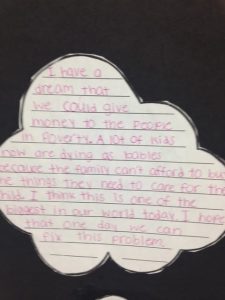 I have a
dream that
we could give
money to the people
in Poverty. A lot of kids
now are dying as babies
because the family can't afford to buy
the things they need to care for the
child. I think this is one of the
biggest in our world today. I hope
that one day we can
fix this problem